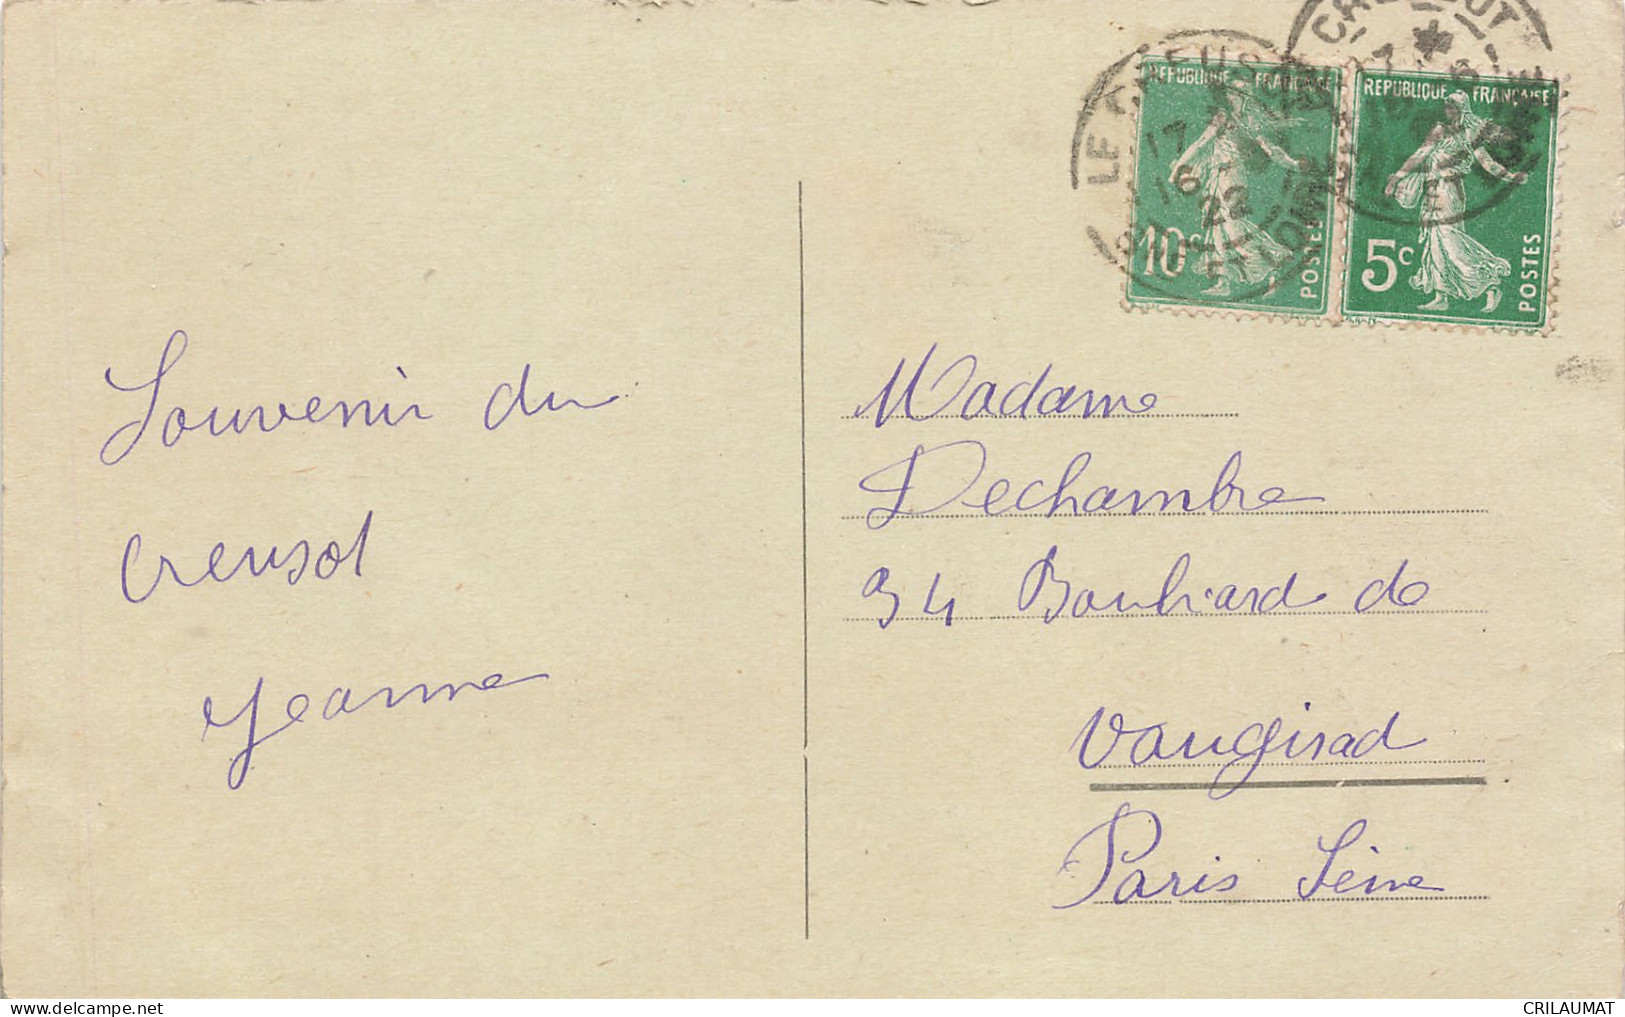 Souvenir du
Creusot
Jeanne
REPUBLIQUE FRANÇAISE
10c
POSTES
REPUBLIQUE FRANÇAISE
5c
POSTES
LE CREUSOT
17
16
22
Madame
Dechambre
34 Boulvard de
Vaugirad
Paris Seine
CRILAUMAT